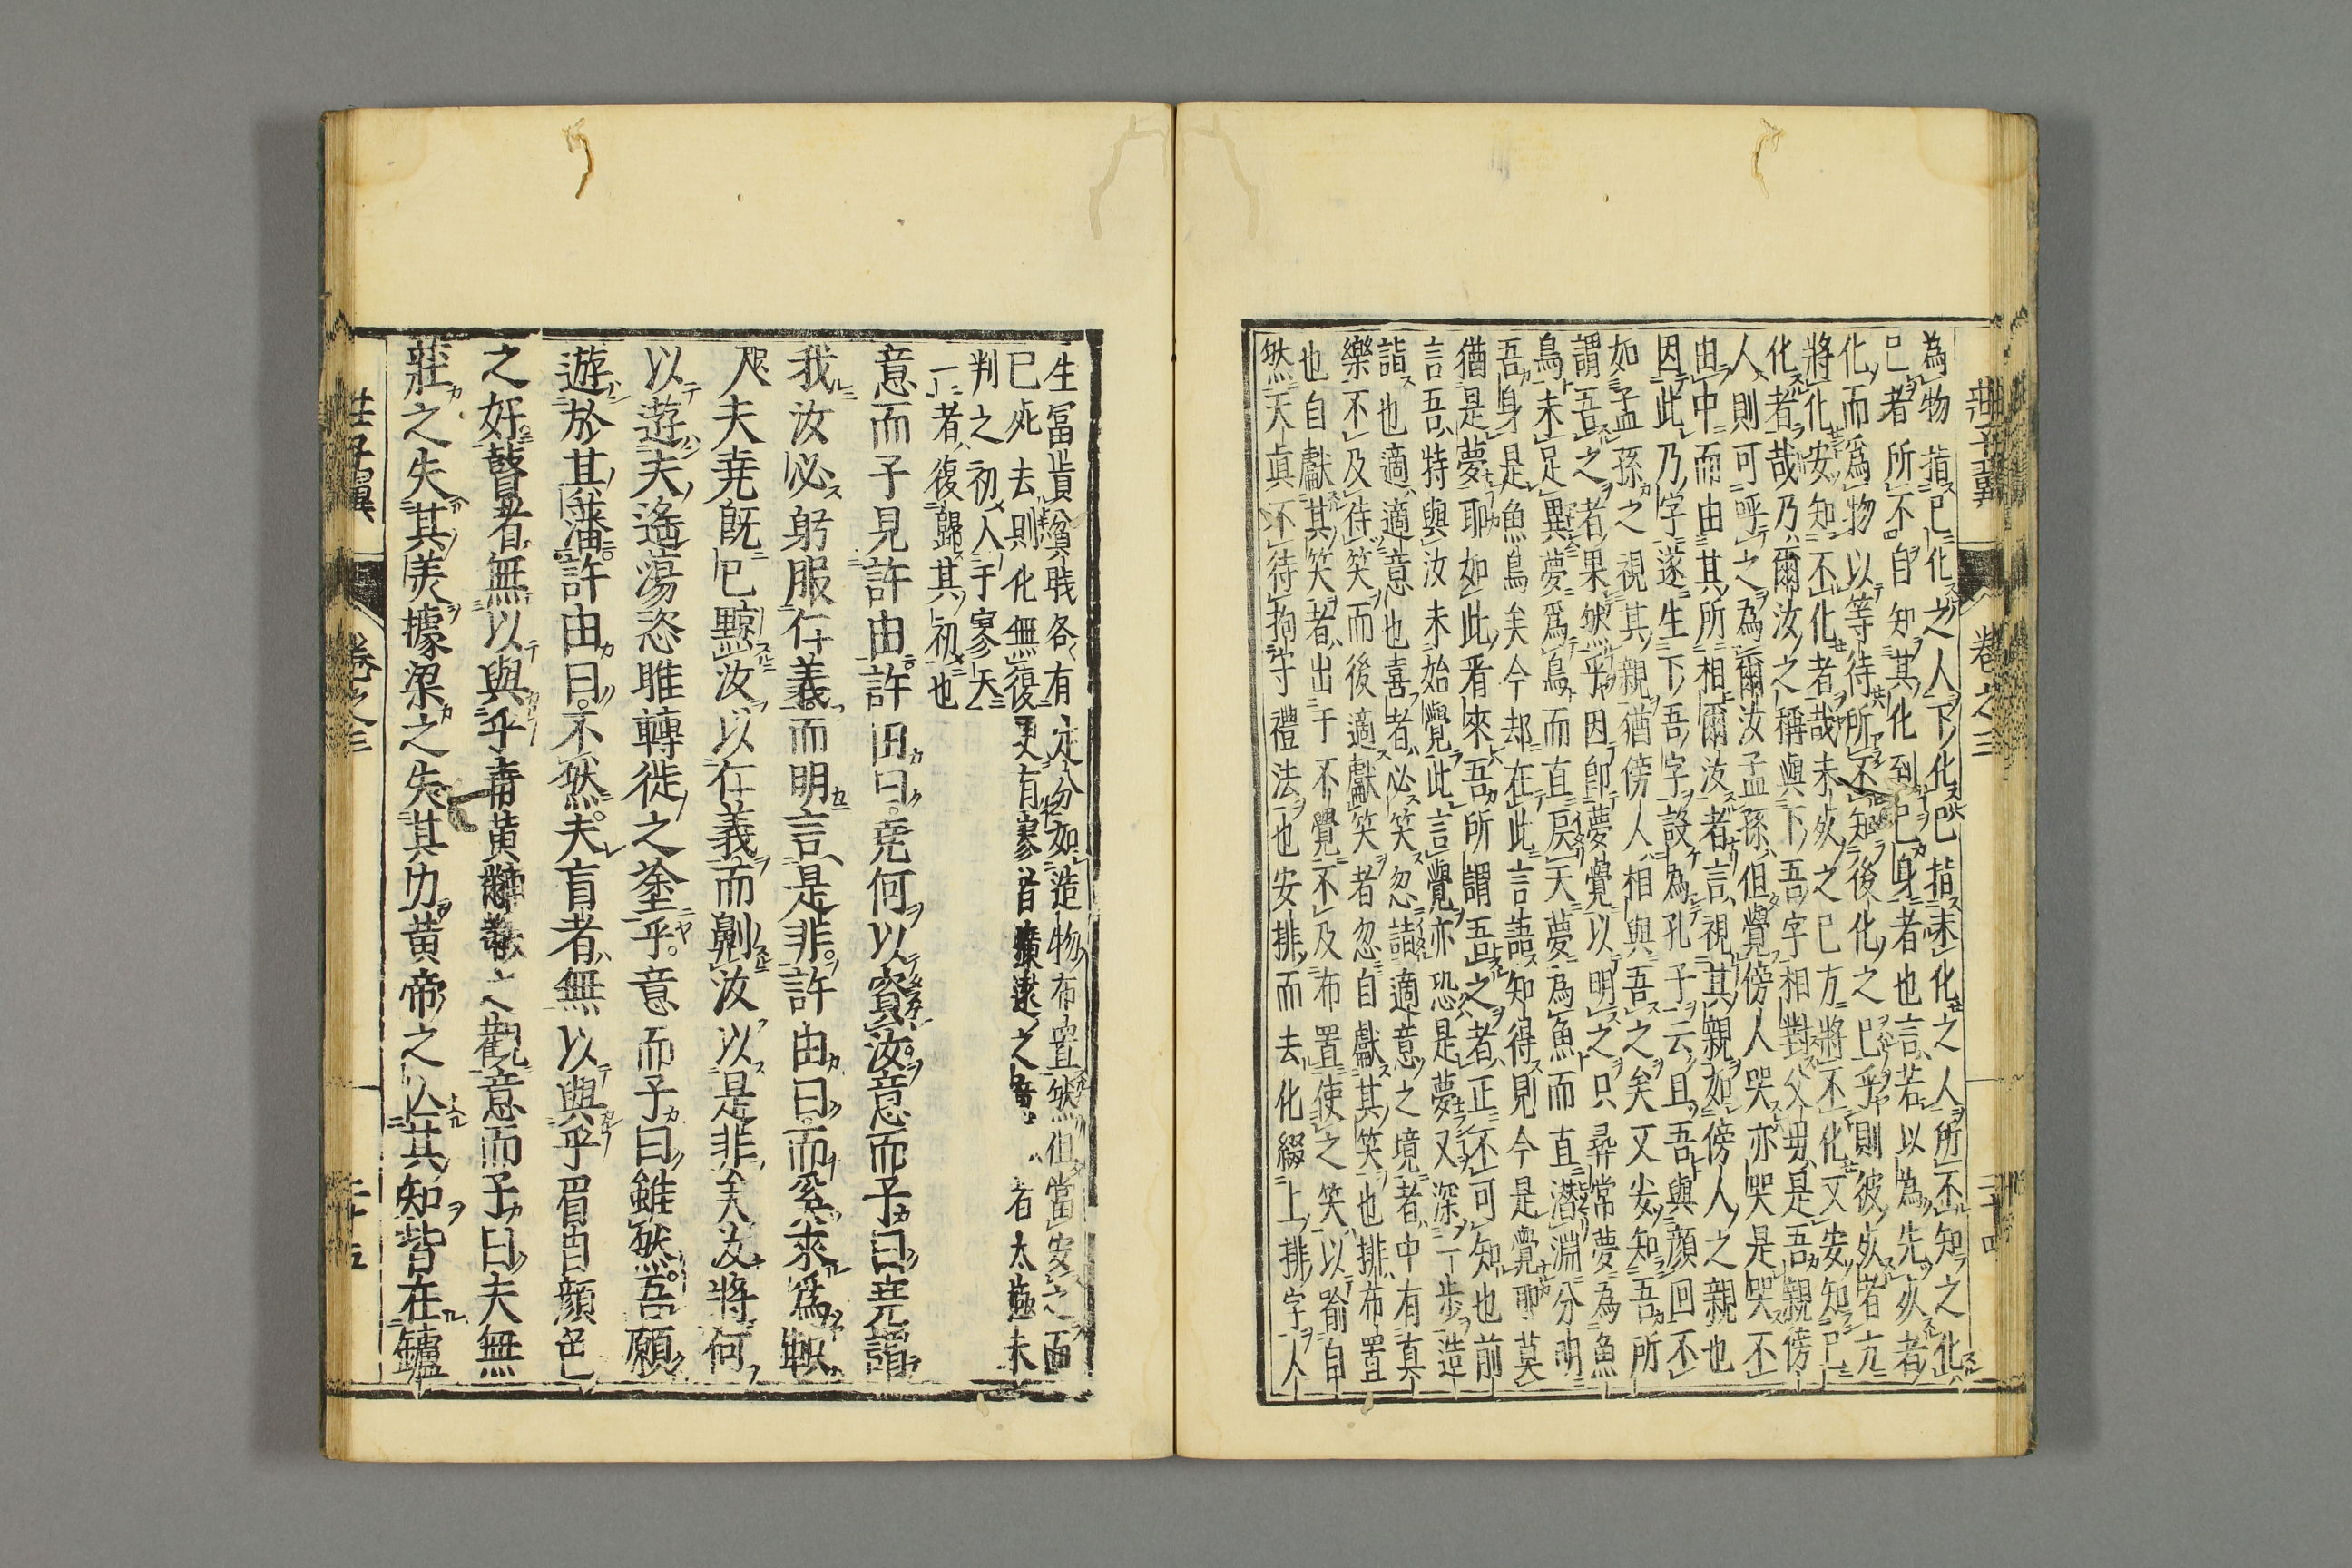 莊子翼 卷之三 三十四
為物指已化之人下化已指未化之人所不知之化
已者所不自知其化到已身者也言若以為先死者
化而為物以等待所不知後化之已乎則彼死者亢
將化安知不化者哉未死之已方將不化又安知已
化者哉乃爾汝之稱與下吾字相對父毋是吾親傍
人則可呼之為爾汝孟孫但覺傍人哭亦哭是哭不
由中而由其所相爾汝者言視其親如傍人之親也
因此乃字遂生下吾字設為孔子云且吾與顔回不
如孟孫之視其親猶傍人相與吾之矣又安知吾所
謂吾之者果然乎因卽夢覺以明之只尋常夢為魚
鳥未足異夢為鳥而直戾天夢為魚而直潛淵分明
吾身是魚鳥矣今却在此言語知得見今是覺耶莫
猶是夢耶如此看來吾所謂吾之者正不可知也前
言吾特與汝未始覺此言覺亦恐是夢又深一步造
詣也適適意也喜者必笑忽詣適意之境者中有真
樂不及待笑而後適獻笑者忽自獻其笑也排布置
也自獻其笑者出于不覺不及布置使之笑以喻自
然天真不待拘守禮法也安排而去化綴上排字人
生富貴貧賤各有定分如造物布置然但當安之而
已死去則化無復更有寥者曠遠之意 者太極未
判之初人于寥天
一者復歸其初也
意而子見許由許由曰堯何以資汝意而子曰堯謂
我汝必躬服仁義而明言是非許由曰而奚來為軹
夫堯既已黥汝以仁義而劓汝以是非矣汝將何
以遊夫遙蕩恣睢轉徙之塗乎意而子曰雖然吾願
遊於其藩許由曰不然夫盲者無以與乎眉目顔色
之好瞽者無以與乎青黃黼黻之觀意而子曰夫無
莊之失其美據梁之失其力黃帝之亾其知皆在鑪
莊子翼 卷之三 三十五